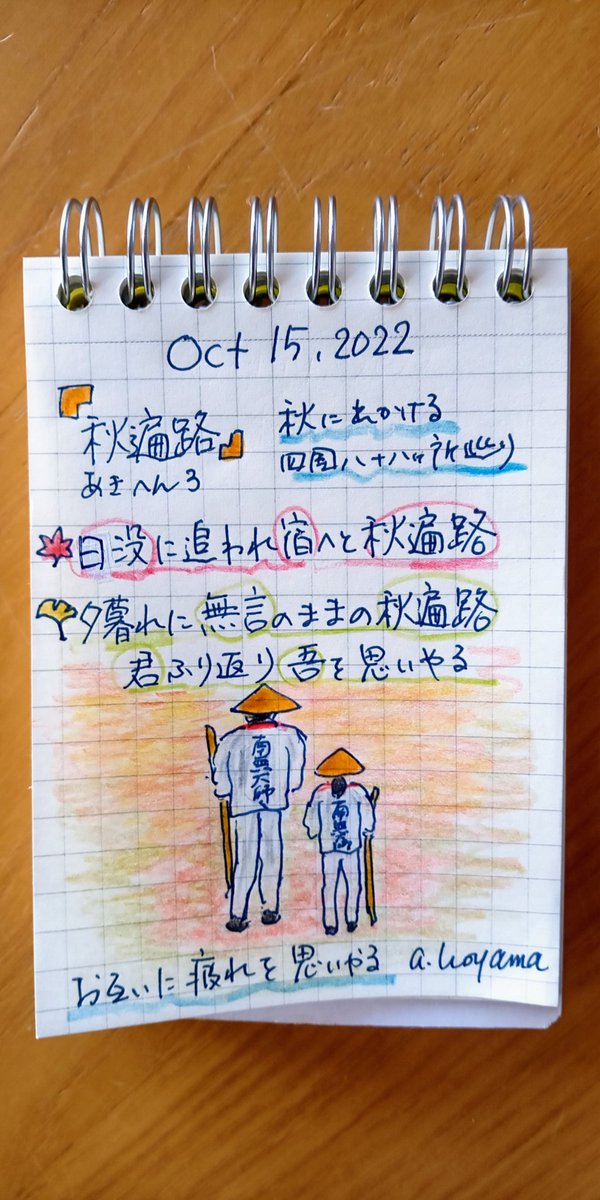 Oct 15, 2022
「秋遍路」
あきへんろ
秋に出かける
四国八十八ヶ所巡り
日没に追われ宿へと秋遍路
夕暮れに無言のままの秋遍路
君ふり返り吾を思いやる
南無大師
お互いに疲れを思いやる
a. koyama